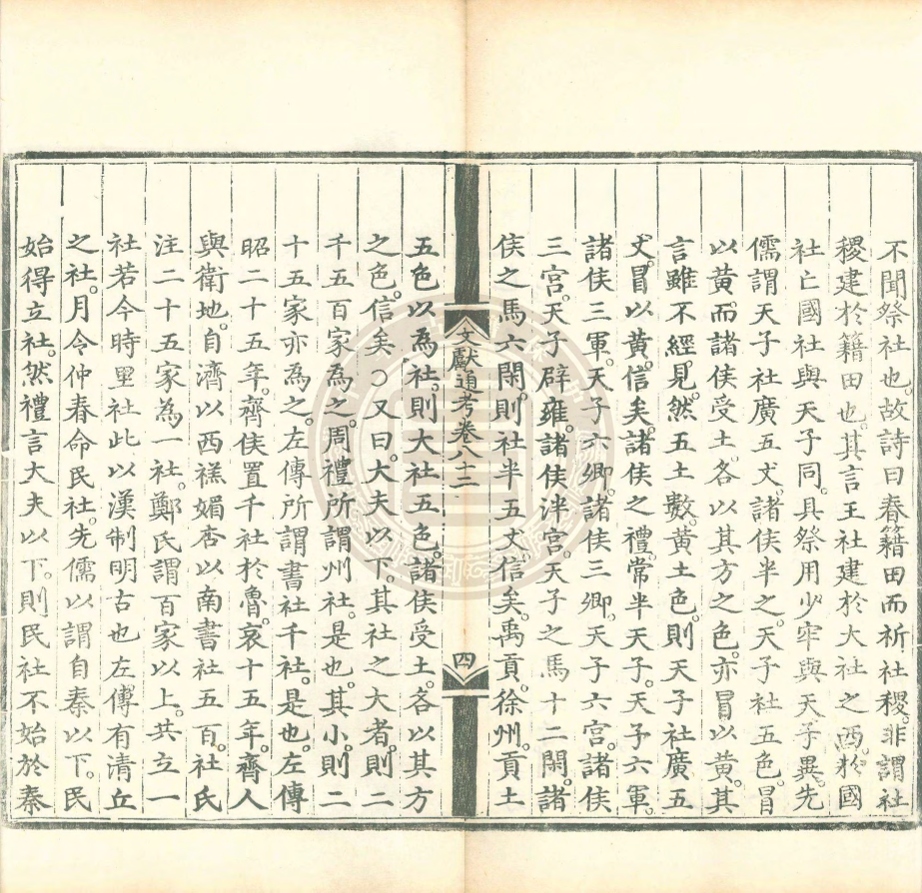 不聞祭社也。故詩曰春籍田而祈社稷。非謂社
稷建於籍田也。其言王社建於大社之西。於國
社亡國社與天子同。具祭用少牢與天子異。先
儒謂天子社廣五丈。諸侯半之。天子社五色。冒
以黃。而諸侯受土。各以其方之色。亦冒以黃。其
言雖不經見。然五土數。黃土色。則天子社廣五
丈。冒以黃。信矣。諸侯之禮。常半天子。天子六軍。
諸侯三軍。天子六卿。諸侯三卿。天子六宮。諸侯
三宮。天子辟雍。諸侯泮宮。天子之馬十二閑。諸
侯之馬六閑。則社半五丈。信矣。禹貢。徐州。貢土
文獻通考卷八十二
四
五色以為社。則大社五色。諸侯受土。各以其方
之色。信矣○又曰。大夫以下。其社之大者。則二
千五百家為之。周禮所謂州社。是也。其小。則二
十五家亦為之。左傳所謂書社千社。是也。左傳
昭二十五年。齊侯置千社於魯。哀十五年。齊人
與衛地。自濟以西。禚媚杏以南。書社五百。杜氏
注二十五家為一社。鄭氏謂百家以上。共立一
社。若今時里社。此以漢制明古也。左傳有清丘
之社。月令仲春命民社。先儒以謂自秦以下。民
始得立社。然禮言大夫以下。則民社不始於秦